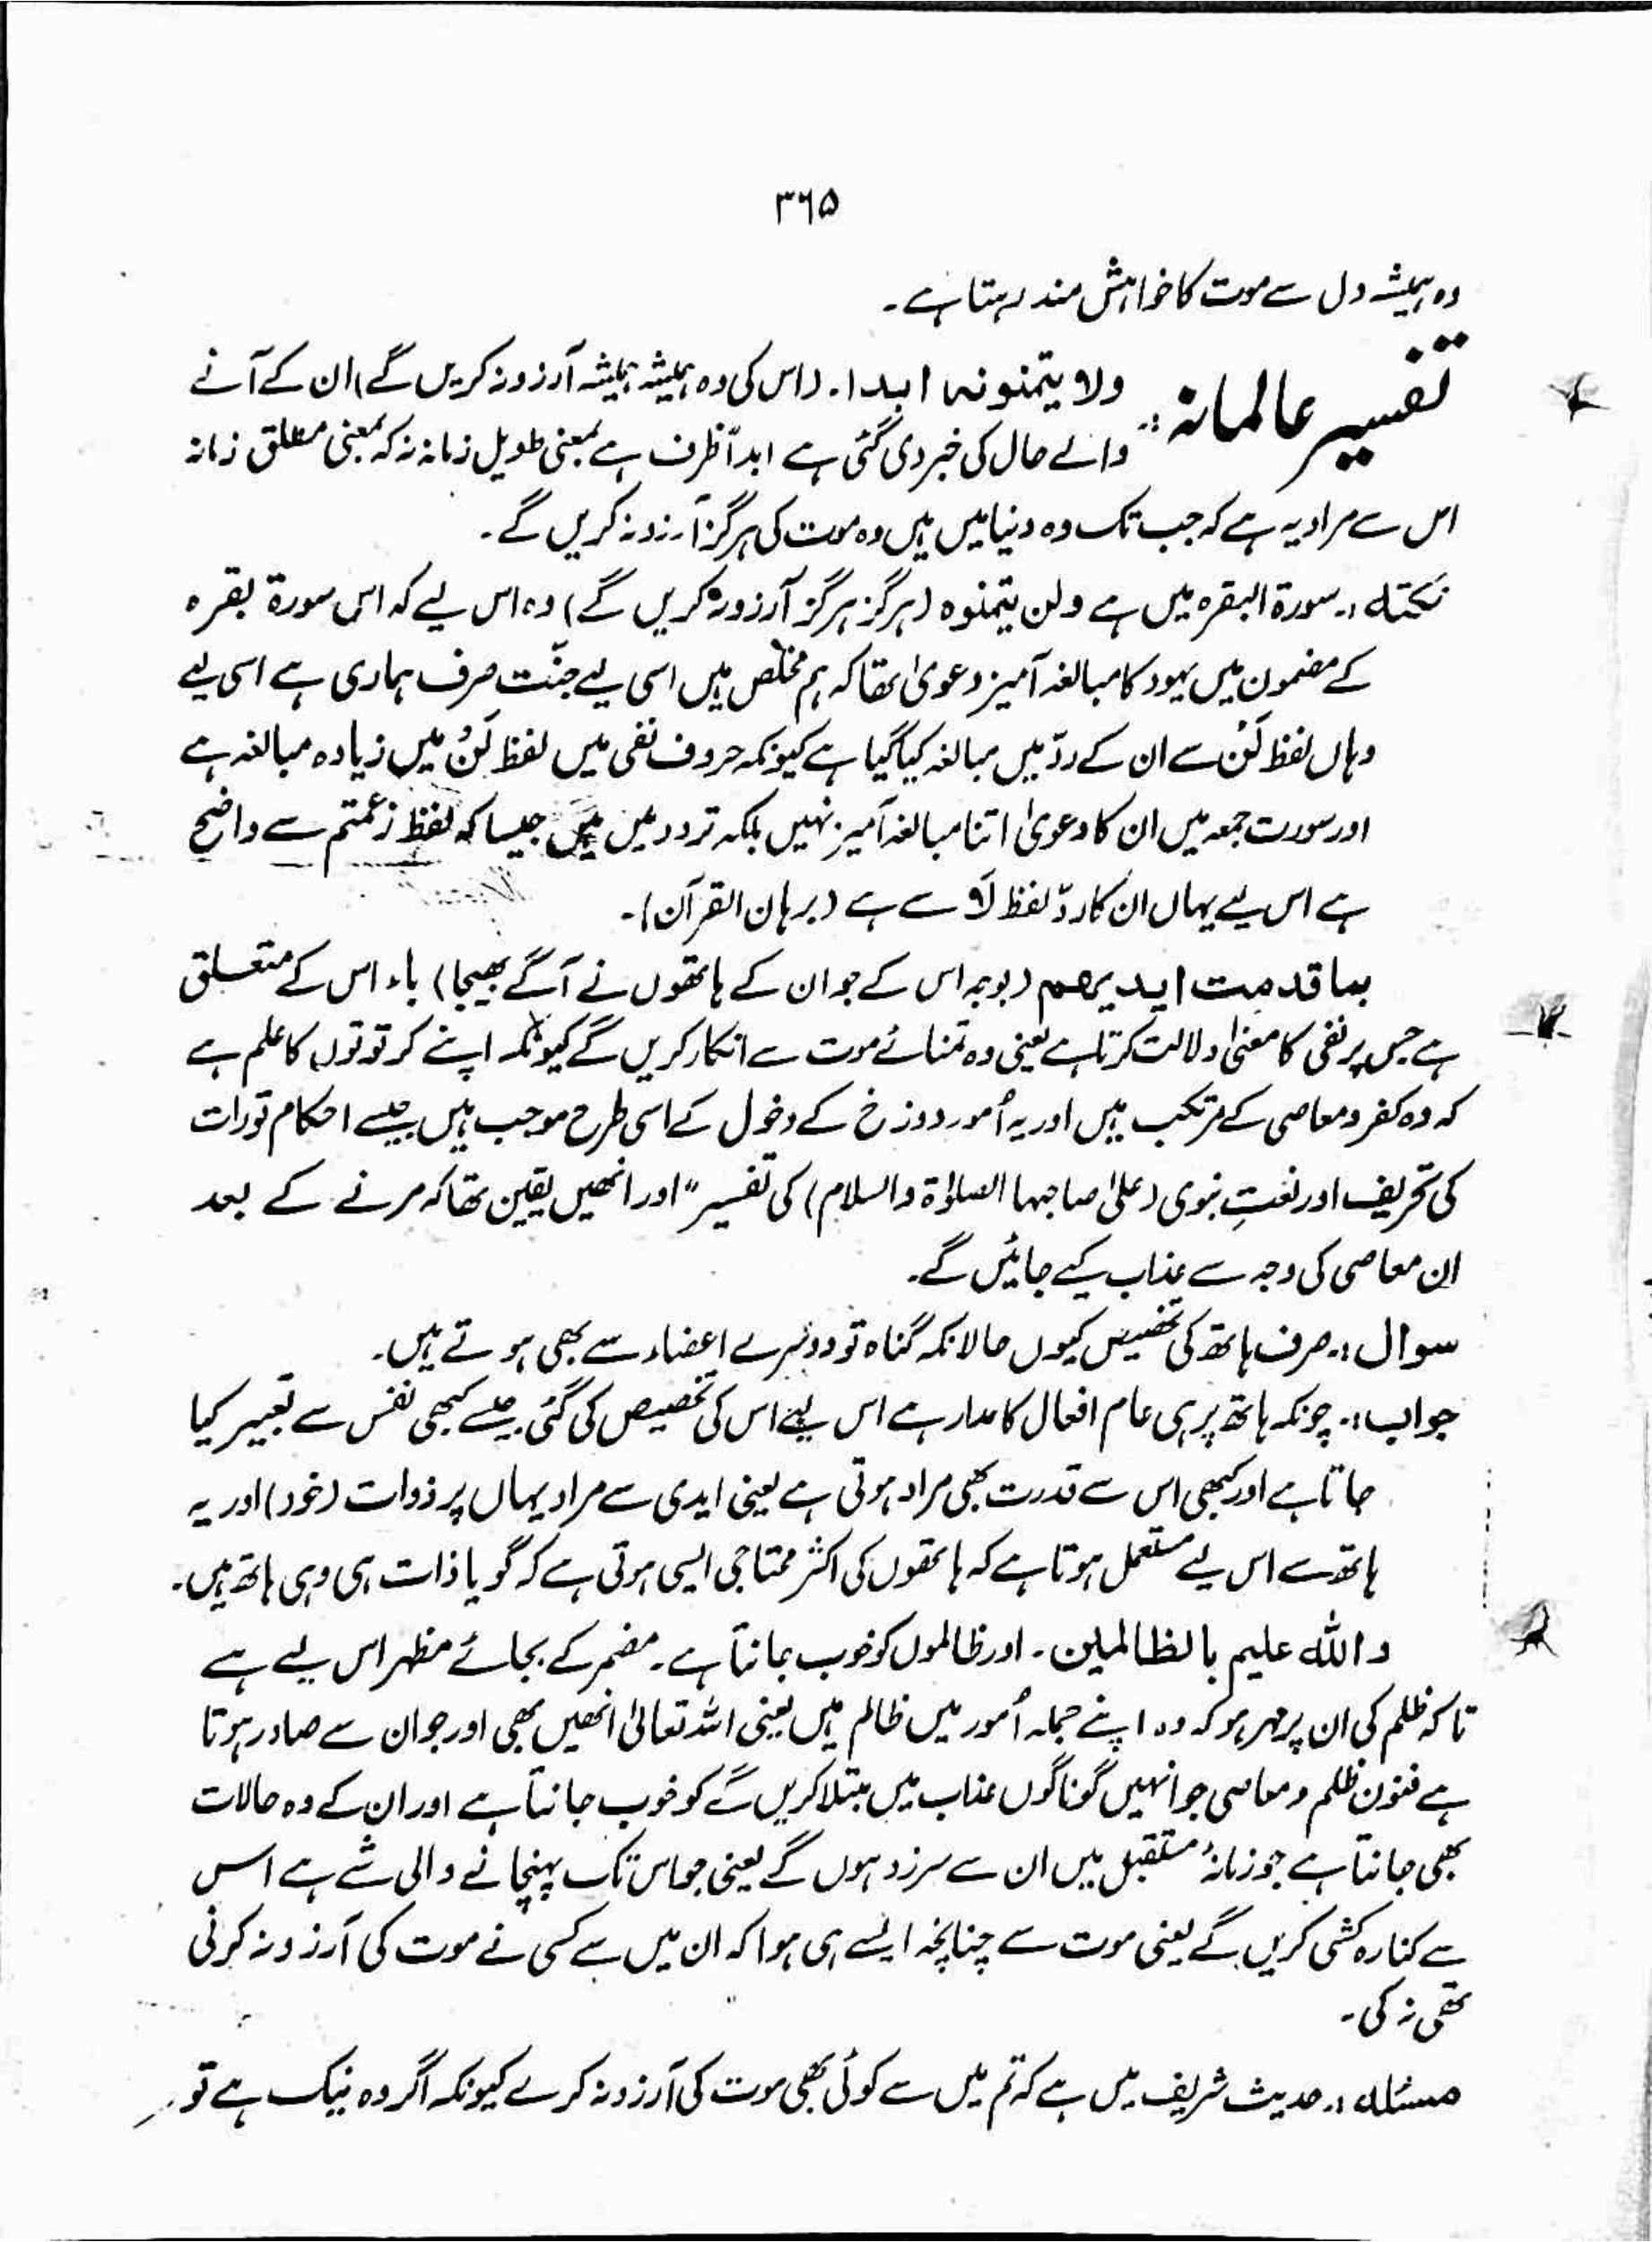 ۳۶۵
وہ ہمیشہ دل سے موت کا خواہش مند رہتا ہے۔
تفسیر عالمانہ:۔ ولا یتمنونہ ابدا۔ (اس کی وہ ہمیشہ ہمیشہ آرزو نہ کریں گے) ان کے آنے
والے حال کی خبر دی گئی ہے ابداً ظرف ہے بمعنی طویل زمانہ نہ کہ بمعنی مطلق زمانہ
اس سے مراد یہ ہے کہ جب تک وہ دنیا میں ہیں وہ موت کی ہرگز آرزو نہ کریں گے۔
نکتہ:۔ سورۃ البقرہ میں ہے ولن یتمنوہ (ہرگز ہرگز آرزو نہ کریں گے) وہ اس لیے کہ اس سورۃ بقرہ
کے مضمون میں یہود کا مبالغہ آمیز دعویٰ تھا کہ ہم مخلص ہیں اسی لیے جنّت صرف ہماری ہے اسی لیے
وہاں لفظ لَنْ سے ان کے ردّ میں مبالغہ کیا گیا ہے کیونکہ حروف نفی میں لفظ لَنْ میں زیادہ مبالغہ ہے
اور سورت جمعہ میں ان کا دعویٰ اتنا مبالغہ آمیز نہیں بلکہ تردد میں ہیں جیسا کہ لفظ زعمتم سے واضح
ہے اس لیے یہاں ان کا ردّ لفظ لَا سے ہے (برہان القرآن)۔
بما قدمت ایدیھم (بوجہ اس کے جو ان کے ہاتھوں نے آگے بھیجا) باء اس کے متعلق
ہے جس پر نفی کا معنیٰ دلالت کرتا ہے یعنی وہ تمنائے موت سے انکار کریں گے کیونکہ اپنے کرتوتوں کا علم ہے
کہ وہ کفر و معاصی کے مرتکب ہیں اور یہ اُمور دوزخ کے دخول کے اسی طرح موجب ہیں جیسے احکام تورات
کی تحریف اور نعتِ نبوی (علیٰ صاحبہا الصلوٰۃ والسلام) کی تفسیر" اور انھیں یقین تھا کہ مرنے کے بعد
ان معاصی کی وجہ سے عذاب کیے جائیں گے۔
سوال:۔ صرف ہاتھ کی تخصیص کیوں حالانکہ گناہ تو دوسرے اعضاء سے بھی ہوتے ہیں۔
جواب:۔ چونکہ ہاتھ پر ہی عام افعال کا مدار ہے اس لیے اس کی تخصیص کی گئی جیسے کبھی نفس سے تعبیر کیا
جاتا ہے اور کبھی اس سے قدرت بھی مراد ہوتی ہے یعنی ایدی سے مراد یہاں پر ذوات (خود) اور یہ
ہاتھ سے اس لیے مستعمل ہوتا ہے کہ ہاتھوں کی اکثر محتاجی ایسی ہوتی ہے کہ گویا ذات ہی وہی ہاتھ ہیں۔
واللہ علیم بالظالمین۔ اور ظالموں کو خوب جانتا ہے۔ مضمر کے بجائے مظہر اس لیے ہے
تاکہ ظلم کی ان پر مہر ہو کہ وہ اپنے جملہ اُمور میں ظالم ہیں یعنی اللہ تعالیٰ انھیں بھی اور جو ان سے صادر ہوتا
ہے فنون ظلم و معاصی جو انہیں گوناگوں عذاب میں مبتلا کریں گے کو خوب جانتا ہے اور ان کے وہ حالات
بھی جانتا ہے جو زمانۂ مستقبل میں ان سے سرزد ہوں گے یعنی جو اس تک پہنچانے والی شے ہے اس
سے کنارہ کشی کریں گے یعنی موت سے چنانچہ ایسے ہی ہوا کہ ان میں سے کسی نے موت کی آرزو نہ کرنی
تھی نہ کی۔
مسئلہ:۔ حدیث شریف میں ہے کہ تم میں سے کوئی بھی موت کی آرزو نہ کرے کیونکہ اگر وہ نیک ہے تو